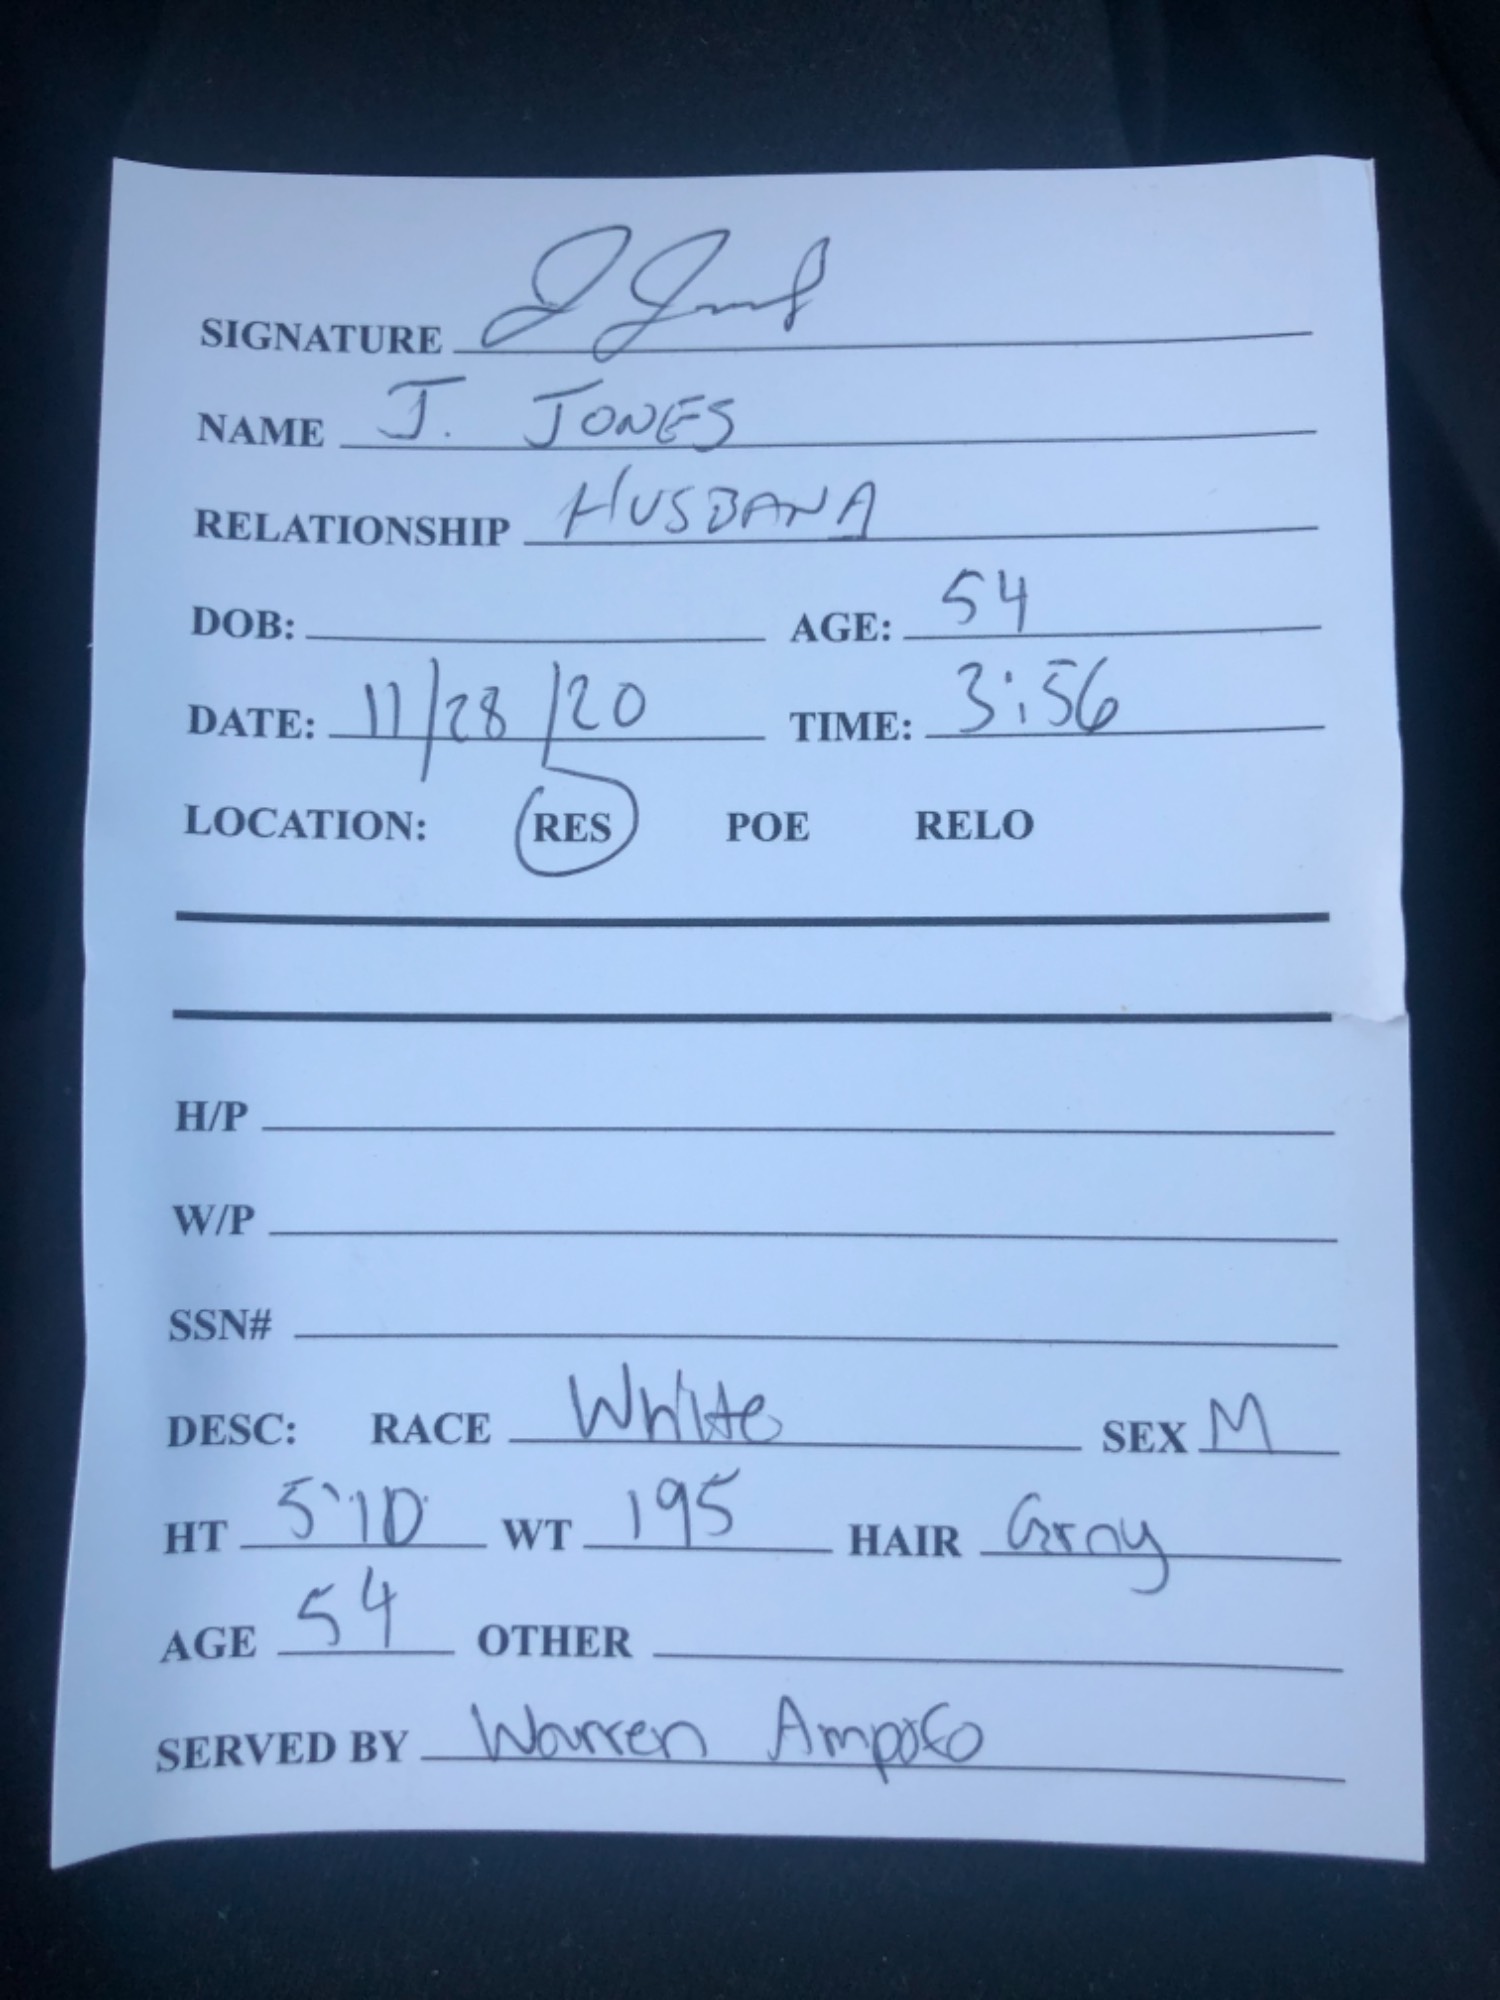 SIGNATURE J Jones
NAME J. JONES
RELATIONSHIP HUSBAND
DOB: AGE: 54
DATE: 11/28/20 TIME: 3:56
LOCATION: RES POE RELO
H/P
W/P
SSN#
DESC: RACE White SEX M
HT 5'10 WT 195 HAIR Gray
AGE 54 OTHER
SERVED BY Warren